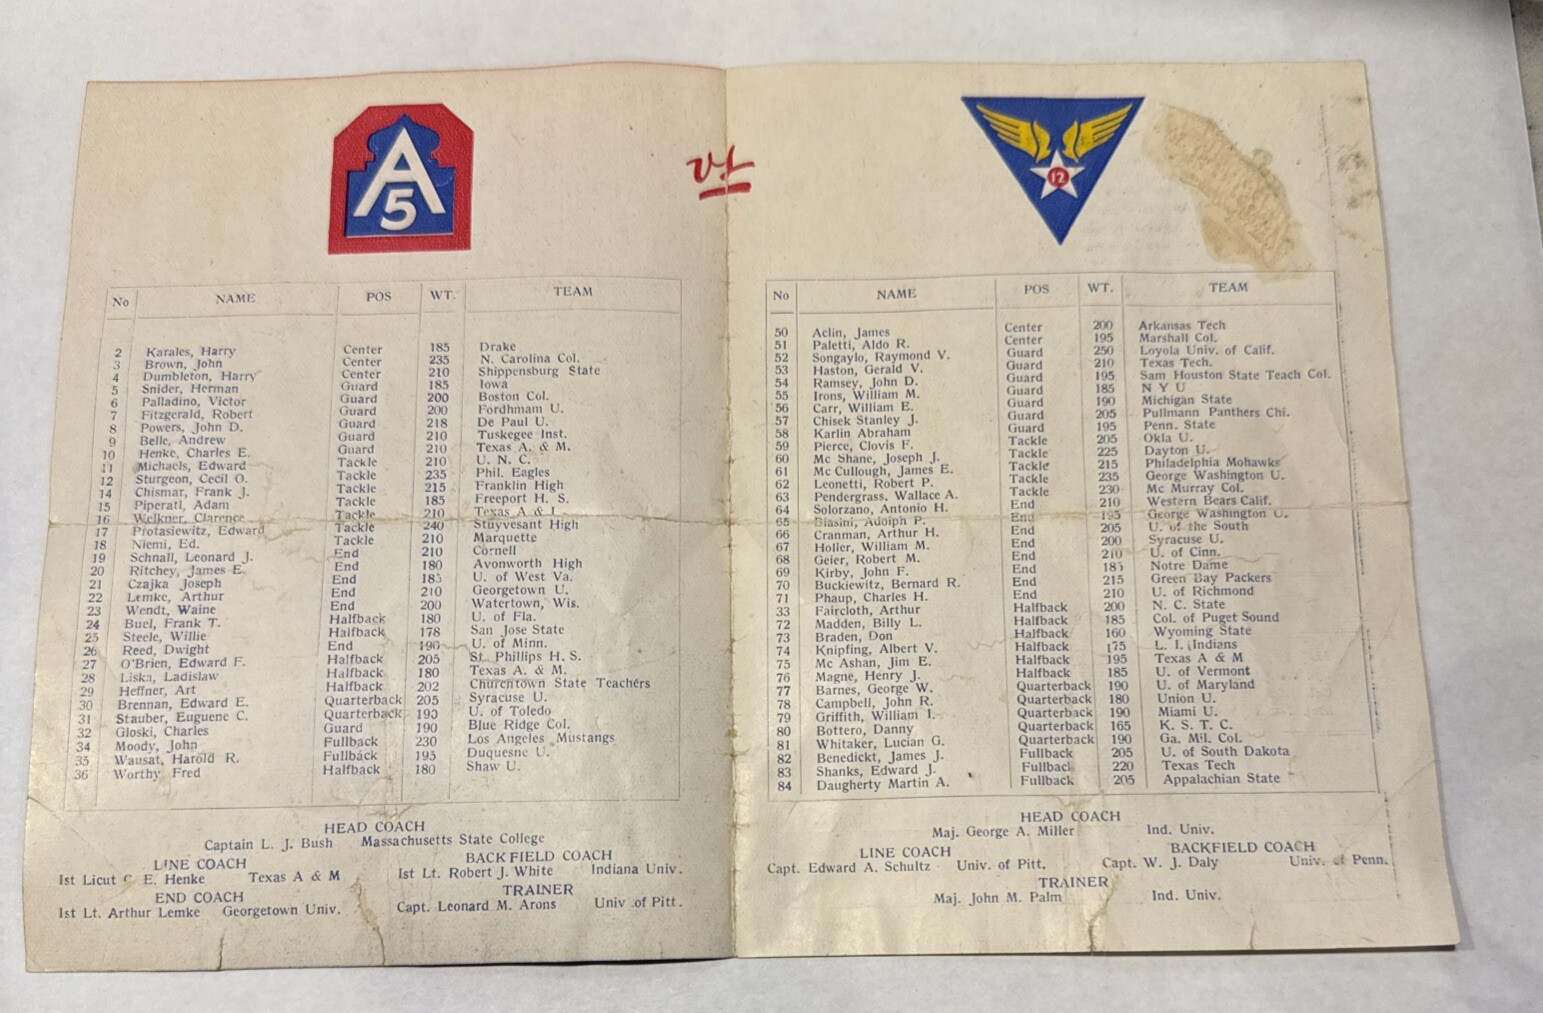 A
5
vs
12
No NAME POS WT. TEAM
2 Karales, Harry Center 185 Drake
3 Brown, John Center 235 N. Carolina Col.
4 Dumbleton, Harry Center 210 Shippensburg State
5 Snider, Herman Guard 185 Iowa
6 Palladino, Victor Guard 200 Boston Col.
7 Fitzgerald, Robert Guard 200 Fordhmam U.
8 Powers, John D. Guard 218 De Paul U.
9 Belle, Andrew Guard 210 Tuskegee Inst.
10 Henke, Charles E. Guard 210 Texas A. & M.
11 Michaels, Edward Tackle 210 U. N. C.
12 Sturgeon, Cecil O. Tackle 235 Phil. Eagles
14 Chismar, Frank J. Tackle 215 Franklin High
15 Piperati, Adam Tackle 185 Freeport H. S.
16 Welkner, Clarence Tackle 210 Texas A & I
17 Protasiewitz, Edward Tackle 240 Stuyvesant High
18 Niemi, Ed. Tackle 210 Marquette
19 Schnall, Leonard J. End 210 Cornell
20 Ritchey, James E. End 180 Avonworth High
21 Czajka Joseph End 185 U. of West Va.
22 Lemke, Arthur End 210 Georgetown U.
23 Wendt, Waine End 200 Watertown, Wis.
24 Buel, Frank T. Halfback 180 U. of Fla.
25 Steele, Willie Halfback 178 San Jose State
26 Reed, Dwight End 190 U. of Minn.
27 O'Brien, Edward F. Halfback 205 St. Phillips H. S.
28 Liska, Ladislaw Halfback 180 Texas A. & M.
29 Heffner, Art Halfback 202 Churchtown State Teachers
30 Brennan, Edward E. Quarterback 205 Syracuse U.
31 Stauber, Euguene C. Quarterback 190 U. of Toledo
32 Gloski, Charles Guard 190 Blue Ridge Col.
34 Moody, John Fullback 230 Los Angeles Mustangs
35 Wausat, Harold R. Fullback 195 Duquesne U.
36 Worthy Fred Halfback 180 Shaw U.
HEAD COACH
Captain L. J. Bush Massachusetts State College
LINE COACH BACKFIELD COACH
1st Lieut C. E. Henke Texas A & M 1st Lt. Robert J. White Indiana Univ.
END COACH TRAINER
1st Lt. Arthur Lemke Georgetown Univ. Capt. Leonard M. Arons Univ of Pitt.
No NAME POS WT. TEAM
50 Aclin, James Center 200 Arkansas Tech
51 Paletti, Aldo R. Center 195 Marshall Col.
52 Songaylo, Raymond V. Guard 250 Loyola Univ. of Calif.
53 Haston, Gerald V. Guard 210 Texas Tech.
54 Ramsey, John D. Guard 195 Sam Houston State Teach Col.
55 Irons, William M. Guard 185 N Y U
56 Carr, William E. Guard 190 Michigan State
57 Chisek Stanley J. Guard 205 Pullmann Panthers Chi.
58 Karlin Abraham Guard 195 Penn. State
59 Pierce, Clovis F. Tackle 205 Okla U.
60 Mc Shane, Joseph J. Tackle 225 Dayton U.
61 Mc Cullough, James E. Tackle 215 Philadelphia Mohawks
62 Leonetti, Robert P. Tackle 235 George Washington U.
63 Pendergrass, Wallace A. Tackle 230 Mc Murray Col.
64 Solorzano, Antonio H. End 210 Western Bears Calif.
65 Biasini, Adolph P. End 195 George Washington U.
66 Cranman, Arthur H. End 205 U. of the South
67 Holler, William M. End 200 Syracuse U.
68 Geier, Robert M. End 210 U. of Cinn.
69 Kirby, John F. End 185 Notre Dame
70 Buckiewitz, Bernard R. End 215 Green Bay Packers
71 Phaup, Charles H. End 210 U. of Richmond
33 Faircloth, Arthur Halfback 200 N. C. State
72 Madden, Billy L. Halfback 185 Col. of Puget Sound
73 Braden, Don Halfback 160 Wyoming State
74 Knipfing, Albert V. Halfback 175 L. I. Indians
75 Mc Ashan, Jim E. Halfback 195 Texas A & M
76 Magne, Henry J. Halfback 185 U. of Vermont
77 Barnes, George W. Quarterback 190 U. of Maryland
78 Campbell, John R. Quarterback 180 Union U.
79 Griffith, William I. Quarterback 190 Miami U.
80 Bottero, Danny Quarterback 165 K. S. T. C.
81 Whitaker, Lucian G. Quarterback 190 Ga. Mil. Col.
82 Benedickt, James J. Fullback 205 U. of South Dakota
83 Shanks, Edward J. Fullback 220 Texas Tech
84 Daugherty Martin A. Fullback 205 Appalachian State
HEAD COACH
Maj. George A. Miller Ind. Univ.
LINE COACH BACKFIELD COACH
Capt. Edward A. Schultz Univ. of Pitt. Capt. W. J. Daly Univ. of Penn.
TRAINER
Maj. John M. Palm Ind. Univ.